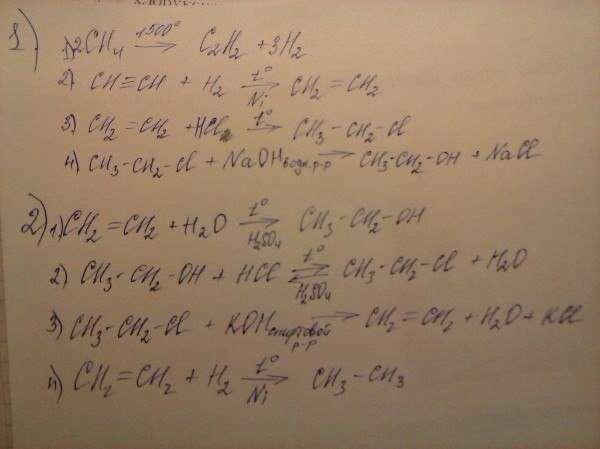 1)
1) 2CH₄ 1500° → C₂H₂ + 3H₂
2) CH≡CH + H₂ t° → Ni CH₂=CH₂
3) CH₂=CH₂ + HCl t° → CH₃-CH₂-Cl
4) CH₃-CH₂-Cl + NaOH водн р-р → CH₃-CH₂-OH + NaCl
2) 1) CH₂=CH₂ + H₂O t° → H₂SO₄ CH₃-CH₂-OH
2) CH₃-CH₂-OH + HCl t° ⇌ H₂SO₄ CH₃-CH₂-Cl + H₂O
3) CH₃-CH₂-Cl + KOH спиртовой р-р → CH₂=CH₂ + H₂O + KCl
4) CH₂=CH₂ + H₂ t° → Ni CH₃-CH₃